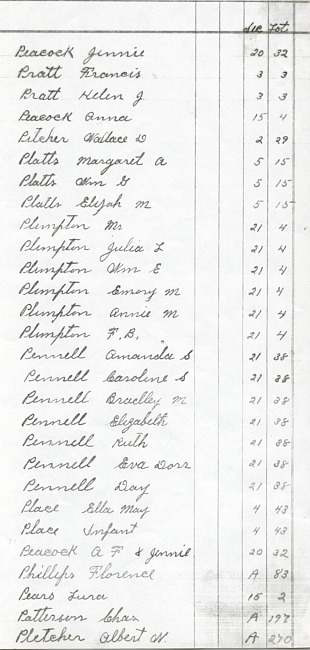 Sec Lot
Peacock Jennie 20 32
Pratt Francis 3 3
Pratt Helen J 3 3
Peacock Anna 15 4
Pitcher Wallace D 2 29
Platts Margaret A 5 15
Platts Wm G 5 15
Platts Elijah M 5 15
Plimpton Mr 21 4
Plimpton Julia L 21 4
Plimpton Wm E 21 4
Plimpton Emory M 21 4
Plimpton Annie M 21 4
Plimpton F. B. 21 4
Pennell Amanda S 21 38
Pennell Caroline S 21 38
Pennell Bradley M 21 38
Pennell Elizabeth 21 38
Pennell Ruth 21 38
Pennell Eva Dorr 21 38
Pennell Day 21 38
Place Ella May 4 43
Place Infant 4 43
Peacock A F & Jennie 20 32
Phillips Florence A 83
Pears Lura 15 2
Patterson Chas A 197
Pletcher Albert N. A 270